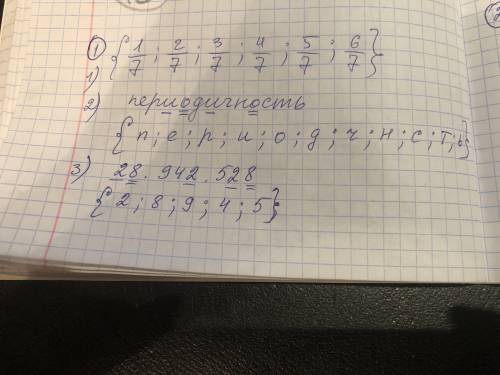 ① { 1/7 ; 2/7 ; 3/7 ; 4/7 ; 5/7 ; 6/7 }
1)
2) периодичность
{ п ; е ; р ; и ; о ; д ; ч ; н ; с ; т ; ь }
3) 28.942.528
{ 2 ; 8 ; 9 ; 4 ; 5 }